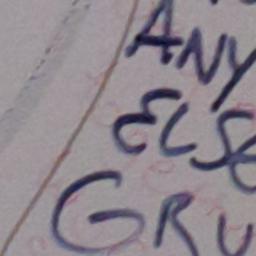 ANY
ELSE
GRU